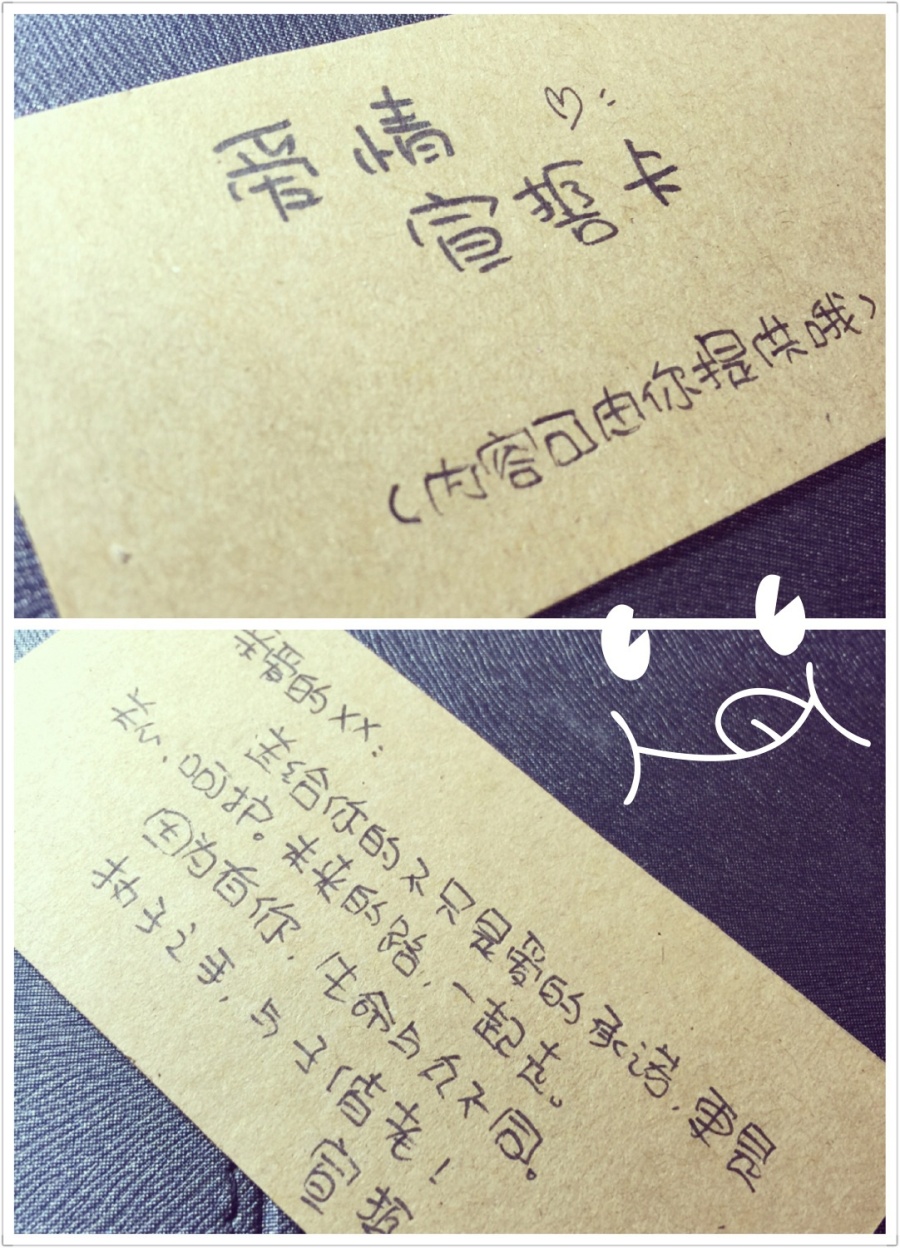 爱情
宣誓卡
（内容可由你提供哦）
亲爱的XX:
送给你的不只是爱的承诺，更是
、呵护。未来的路，一起走。
因为有你，生命与众不同。
执子之手，与子偕老！
宣誓